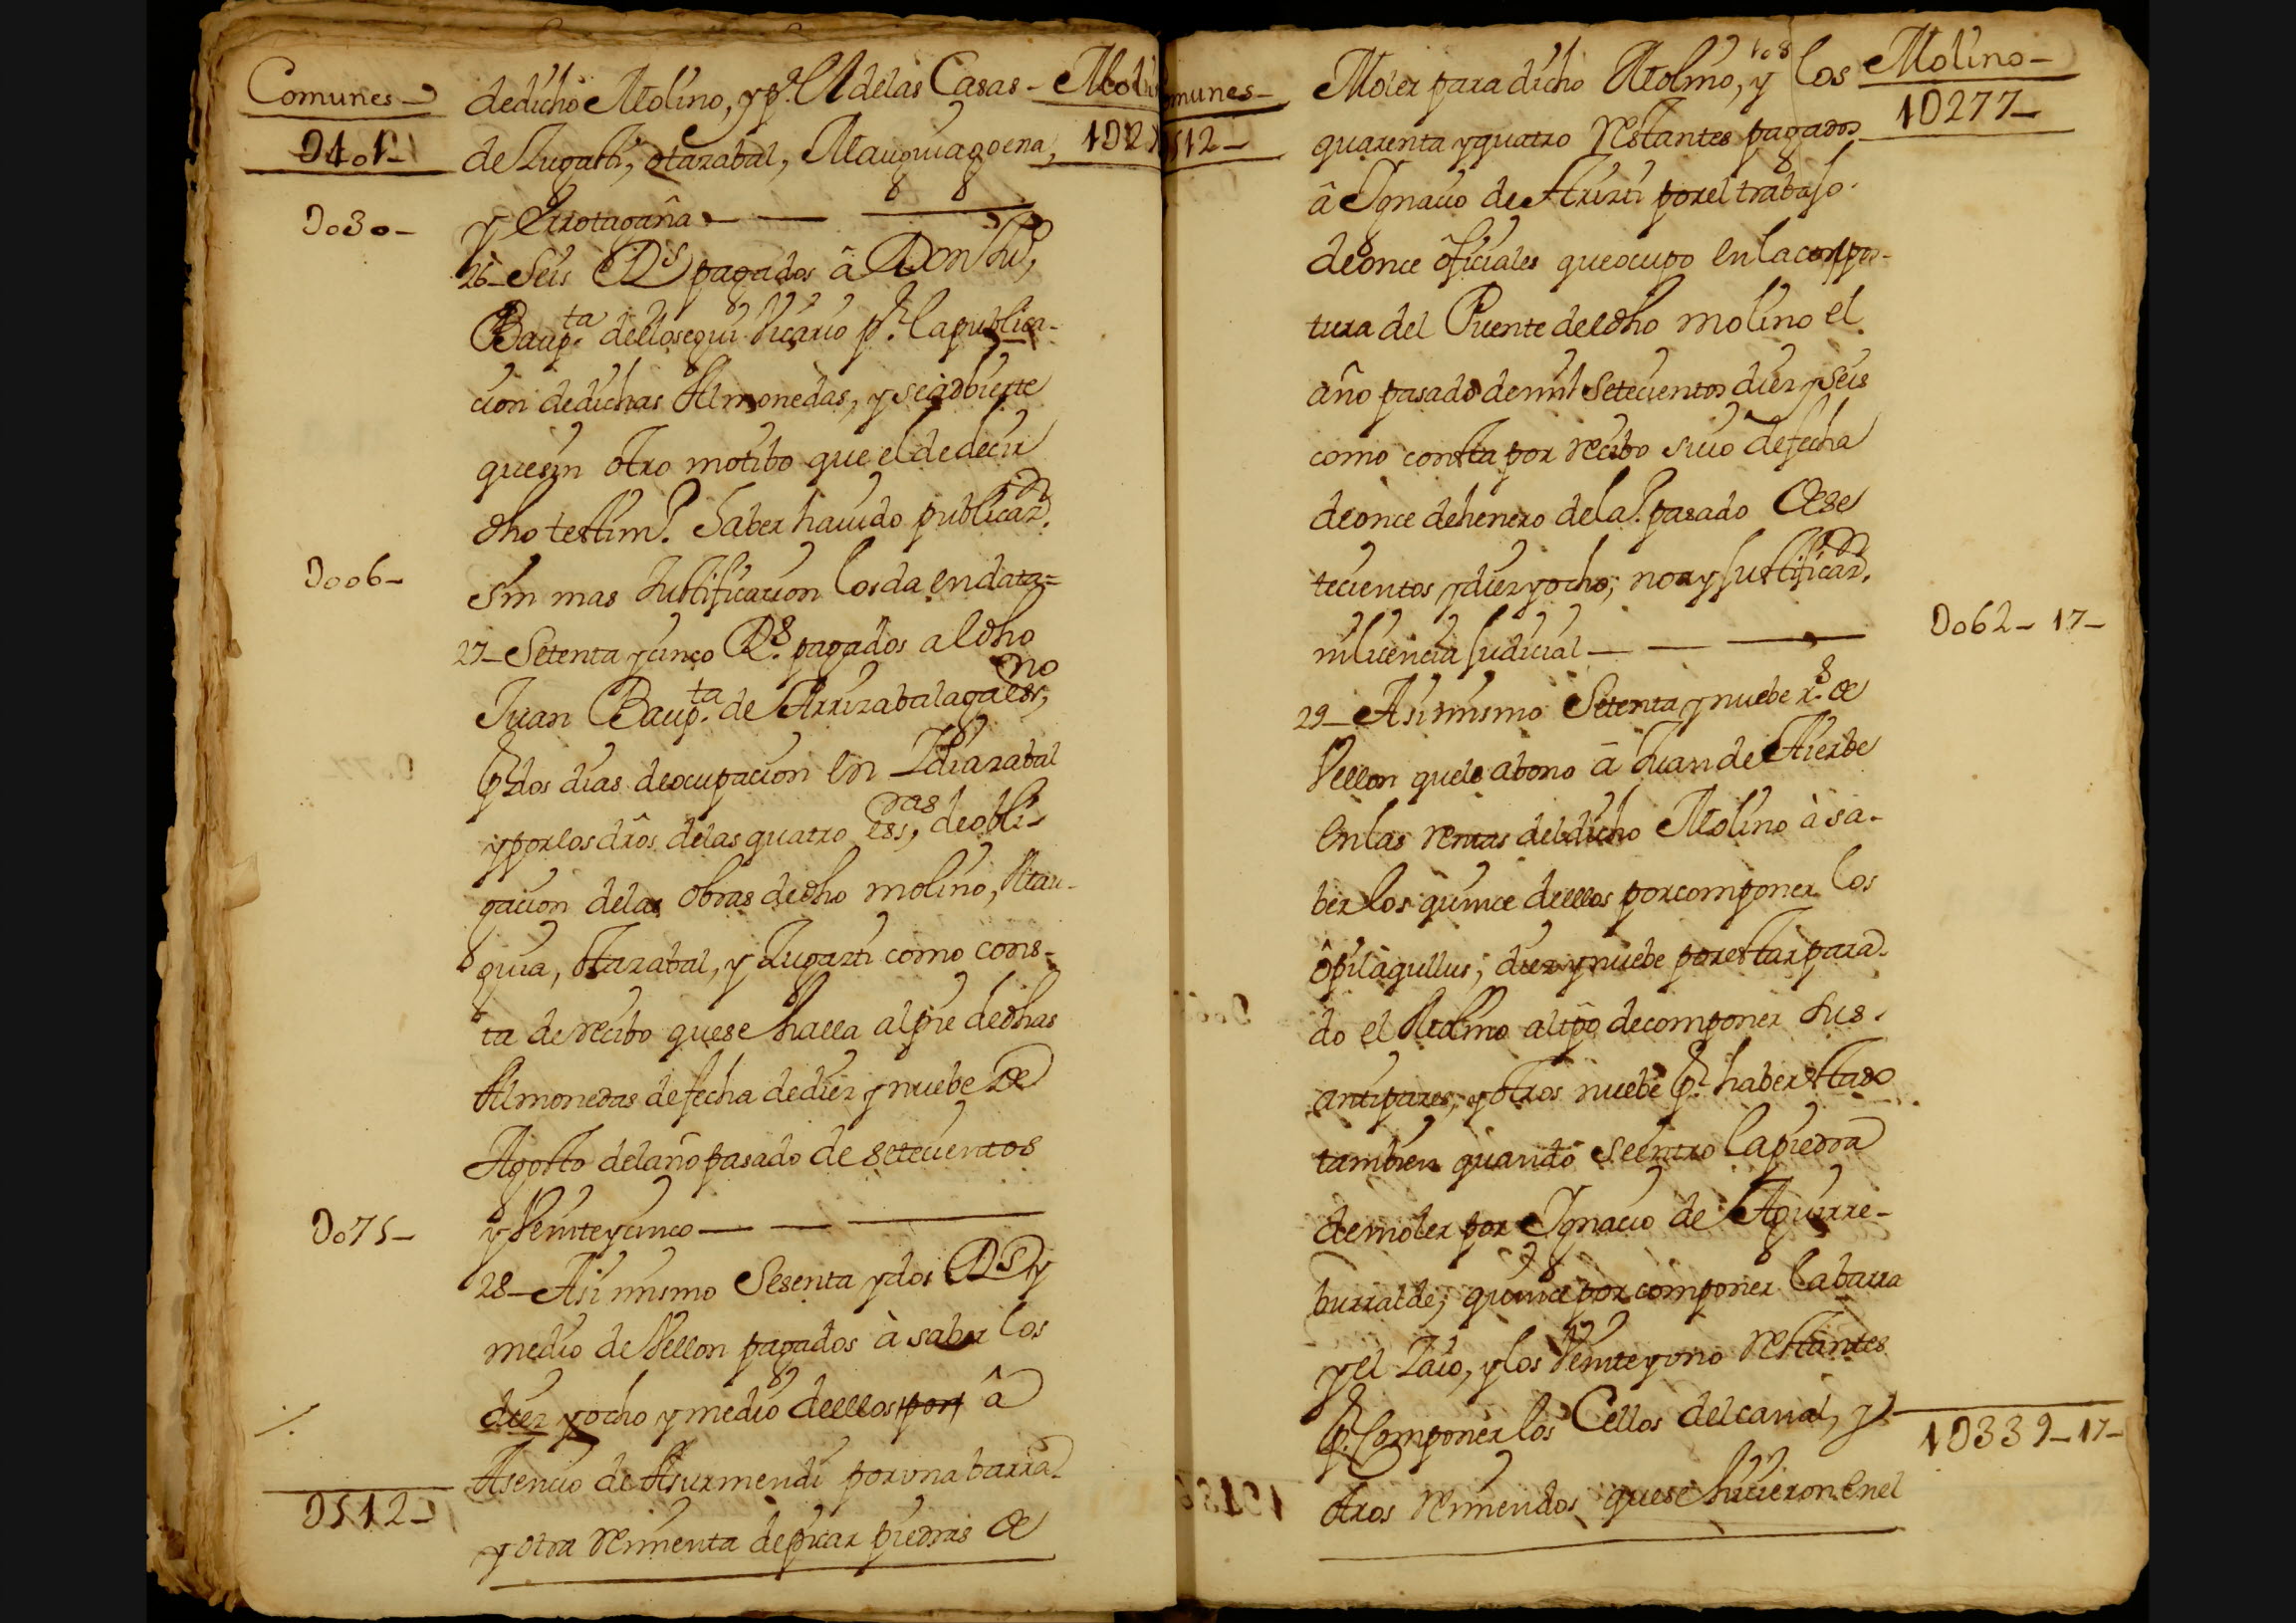 Comunes
0401
dedicho Molino, y pr. el delas Casas - Moli
102
de Lugarti, otarabal, Mauquiagoena,
0030-
y Errotagaña
26-Seis Ds pagados â Don Ju,
Baupta. dellosegui Vicario pr. la publica-
cion dedichas Almonedas, y seadbierte
quesin otro motibo que el dedecir
dho testim.o haber havido publicaz.on
0006-
sin mas Justificacion losda en data=
27-Setenta y cinco Rs. pagados aldho
Juan Baupta. de Arrizabalaga esno,
pr dos dias deocupacion en Idiazabal
yporlosdrôs delasquatro essras, deobli-
gacion delas obras dedho molino, Mau-
quia, Otarabal, y Lugarti como cons-
ta de recibo quese halla alpie dedhas
Almonedas defecha dediez y nuebe de
Agosto delaño pasado de setecientos
0075-
y Veinteycinco
28-Asi mismo Sesenta ydos Ds y
medio de Vellon pagados à saber los
diez yocho y medio deellos por â
Asencio de Asurmendi por una barra
0512
y otra Rimienta depicar piedras de
omunes-
512-
Moler para dicho Molino, y los
Molino-
10277-
quarenta yquatro restantes pagados
â Ignacio de Aruzti por el trabajo
deonce ôficiales queocupo en lacompos-
tura del Puente deldho molino el
año pasado demil setecientos diez y seis
como consta por recibo suio defecha
deonce dehenero dela.o pasado dese
tecientos ydiez yocho, noay justificaz.on
nilicencia Judicial
0062-17-
29-Asimismo Setenta y nuebe rs. de
Vellon quele abono â Juan de Aierbe
en las rentas deldicho Molino à sa-
ber los quince deellos por componer los
ôpilagullus; diez y nuebe porestar para-
do el Molino altpo decomponer sus
antipares, y otros nuebe pr. haber estado
tambien quando seentro la piedra
demoler por Ignacio de Aguirre-
burralde; quince por componer la barra
y el Laio, y los Veinte y uno restantes
pr. Componer los Cellos del canal, y
10339-17-
otros remiendos quese hicieron en el